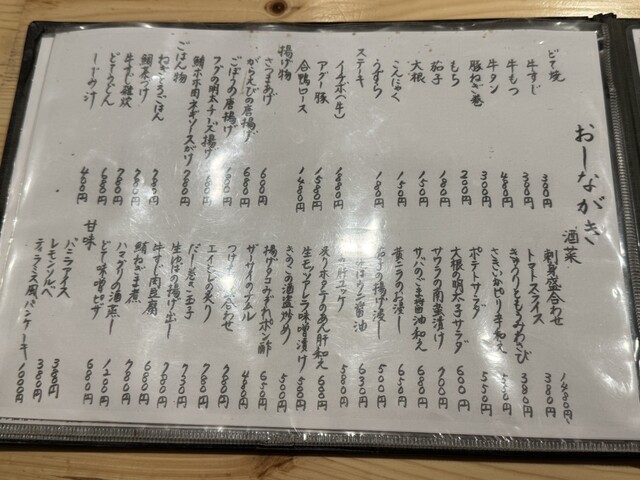 おしながき
どて焼
牛すじ 300円
牛もつ 300円
牛タン 480円
豚ねぎ巻 300円
もち 200円
茄子 180円
大根 150円
こんにゃく 150円
うずら 180円
ステーキ
イチボ(牛) 1880円
アグー豚 1580円
合鴨ロース 1480円
揚げ物
さつまあげ 600円
がらえびの唐揚げ 680円
ごぼうの唐揚げ
フグの明太チーズ揚げ
鯛ホホ肉ネギソースがけ 780円
ごはん物
ねぎとろごはん 780円
鯛茶づけ 780円
牛すじ雑炊 780円
どてうどん 680円
しじみ汁 480円
酒菜
刺身盛合わせ 1480円
トマトスライス 380円
きゅうりともろみわさび 380円
さきいかピリ辛和え 550円
ポテトサラダ 550円
大根の明太子サラダ 600円
サワラの南蛮漬け 700円
サバのごま醤油和え 680円
黄ニラのお浸し 650円
茄子の揚げ浸し 500円
醤油 630円
肝ユッケ 580円
炙りホタテのあん肝和え 600円
生モッツアレラ味噌漬け 580円
きのこの酒盗炒め 500円
揚げタコみぞれポン酢 650円
ザーサイのナムル 480円
つけもの盛合わせ 780円
エイヒレの炙り 780円
だし巻き玉子 780円
生ゆばの揚げ出し 730円
牛すじ肉豆腐 780円
鯛ねぎま煮 680円
ハマグリの酒蒸し 780円
どて味噌ピザ 1200円
甘味
バニラアイス 380円
レモンソルベ 380円
ティラミス風パンケーキ 1000円